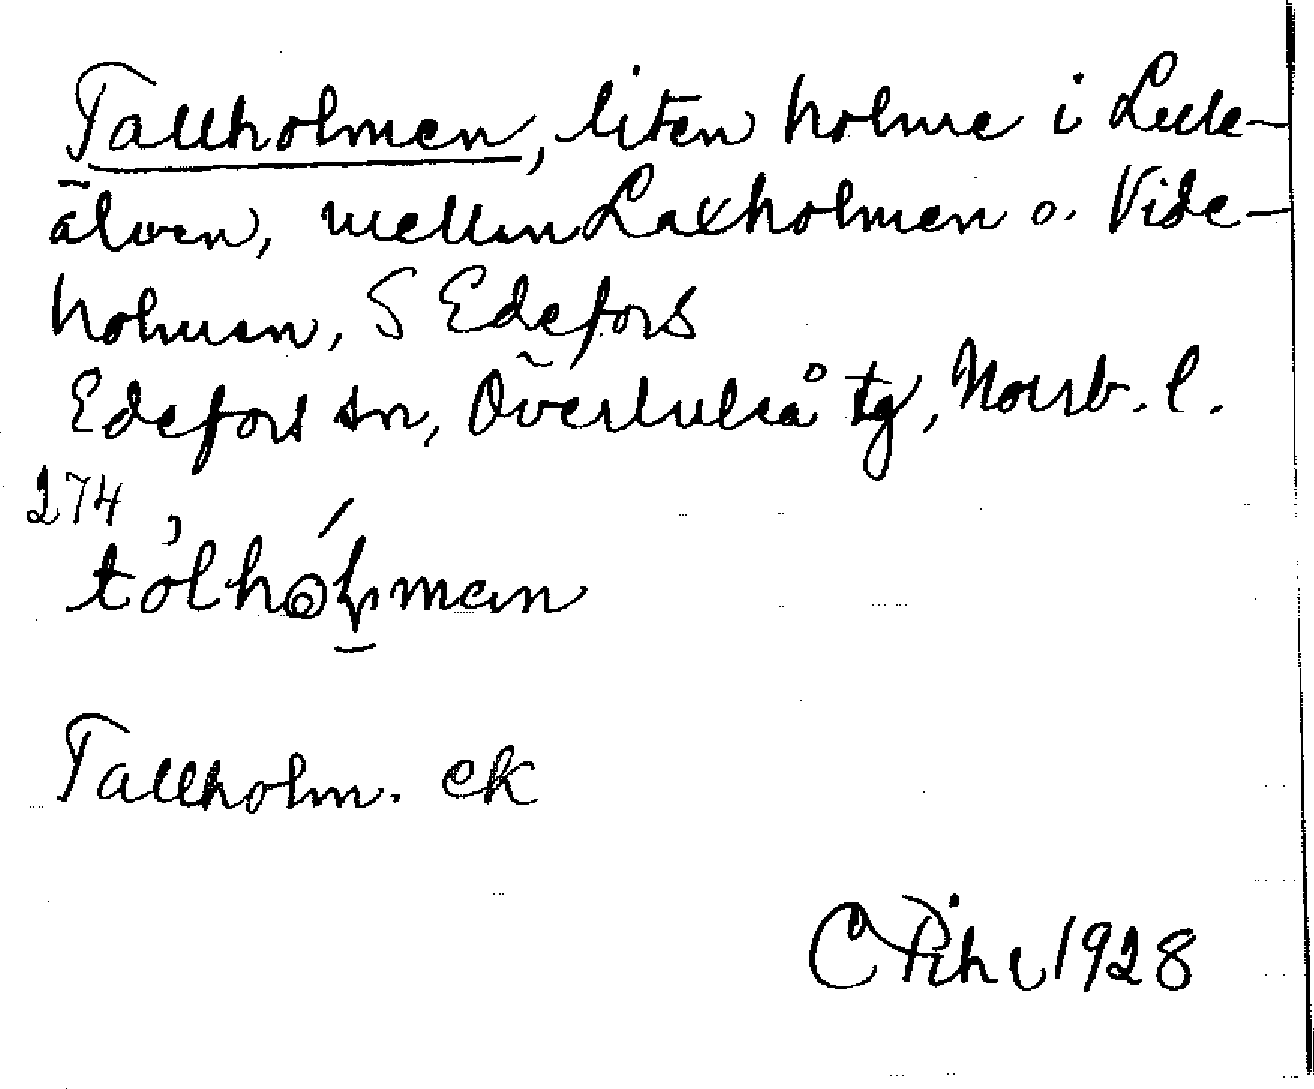 Tallholmen, liten holme i Lule-
älven, mellan Laxholmen o. Vide-
holmen, S Edefors
Edefors sn, Överluleå tg, Norrb. l.
274
Tallholm. ek
C Pihl 1928